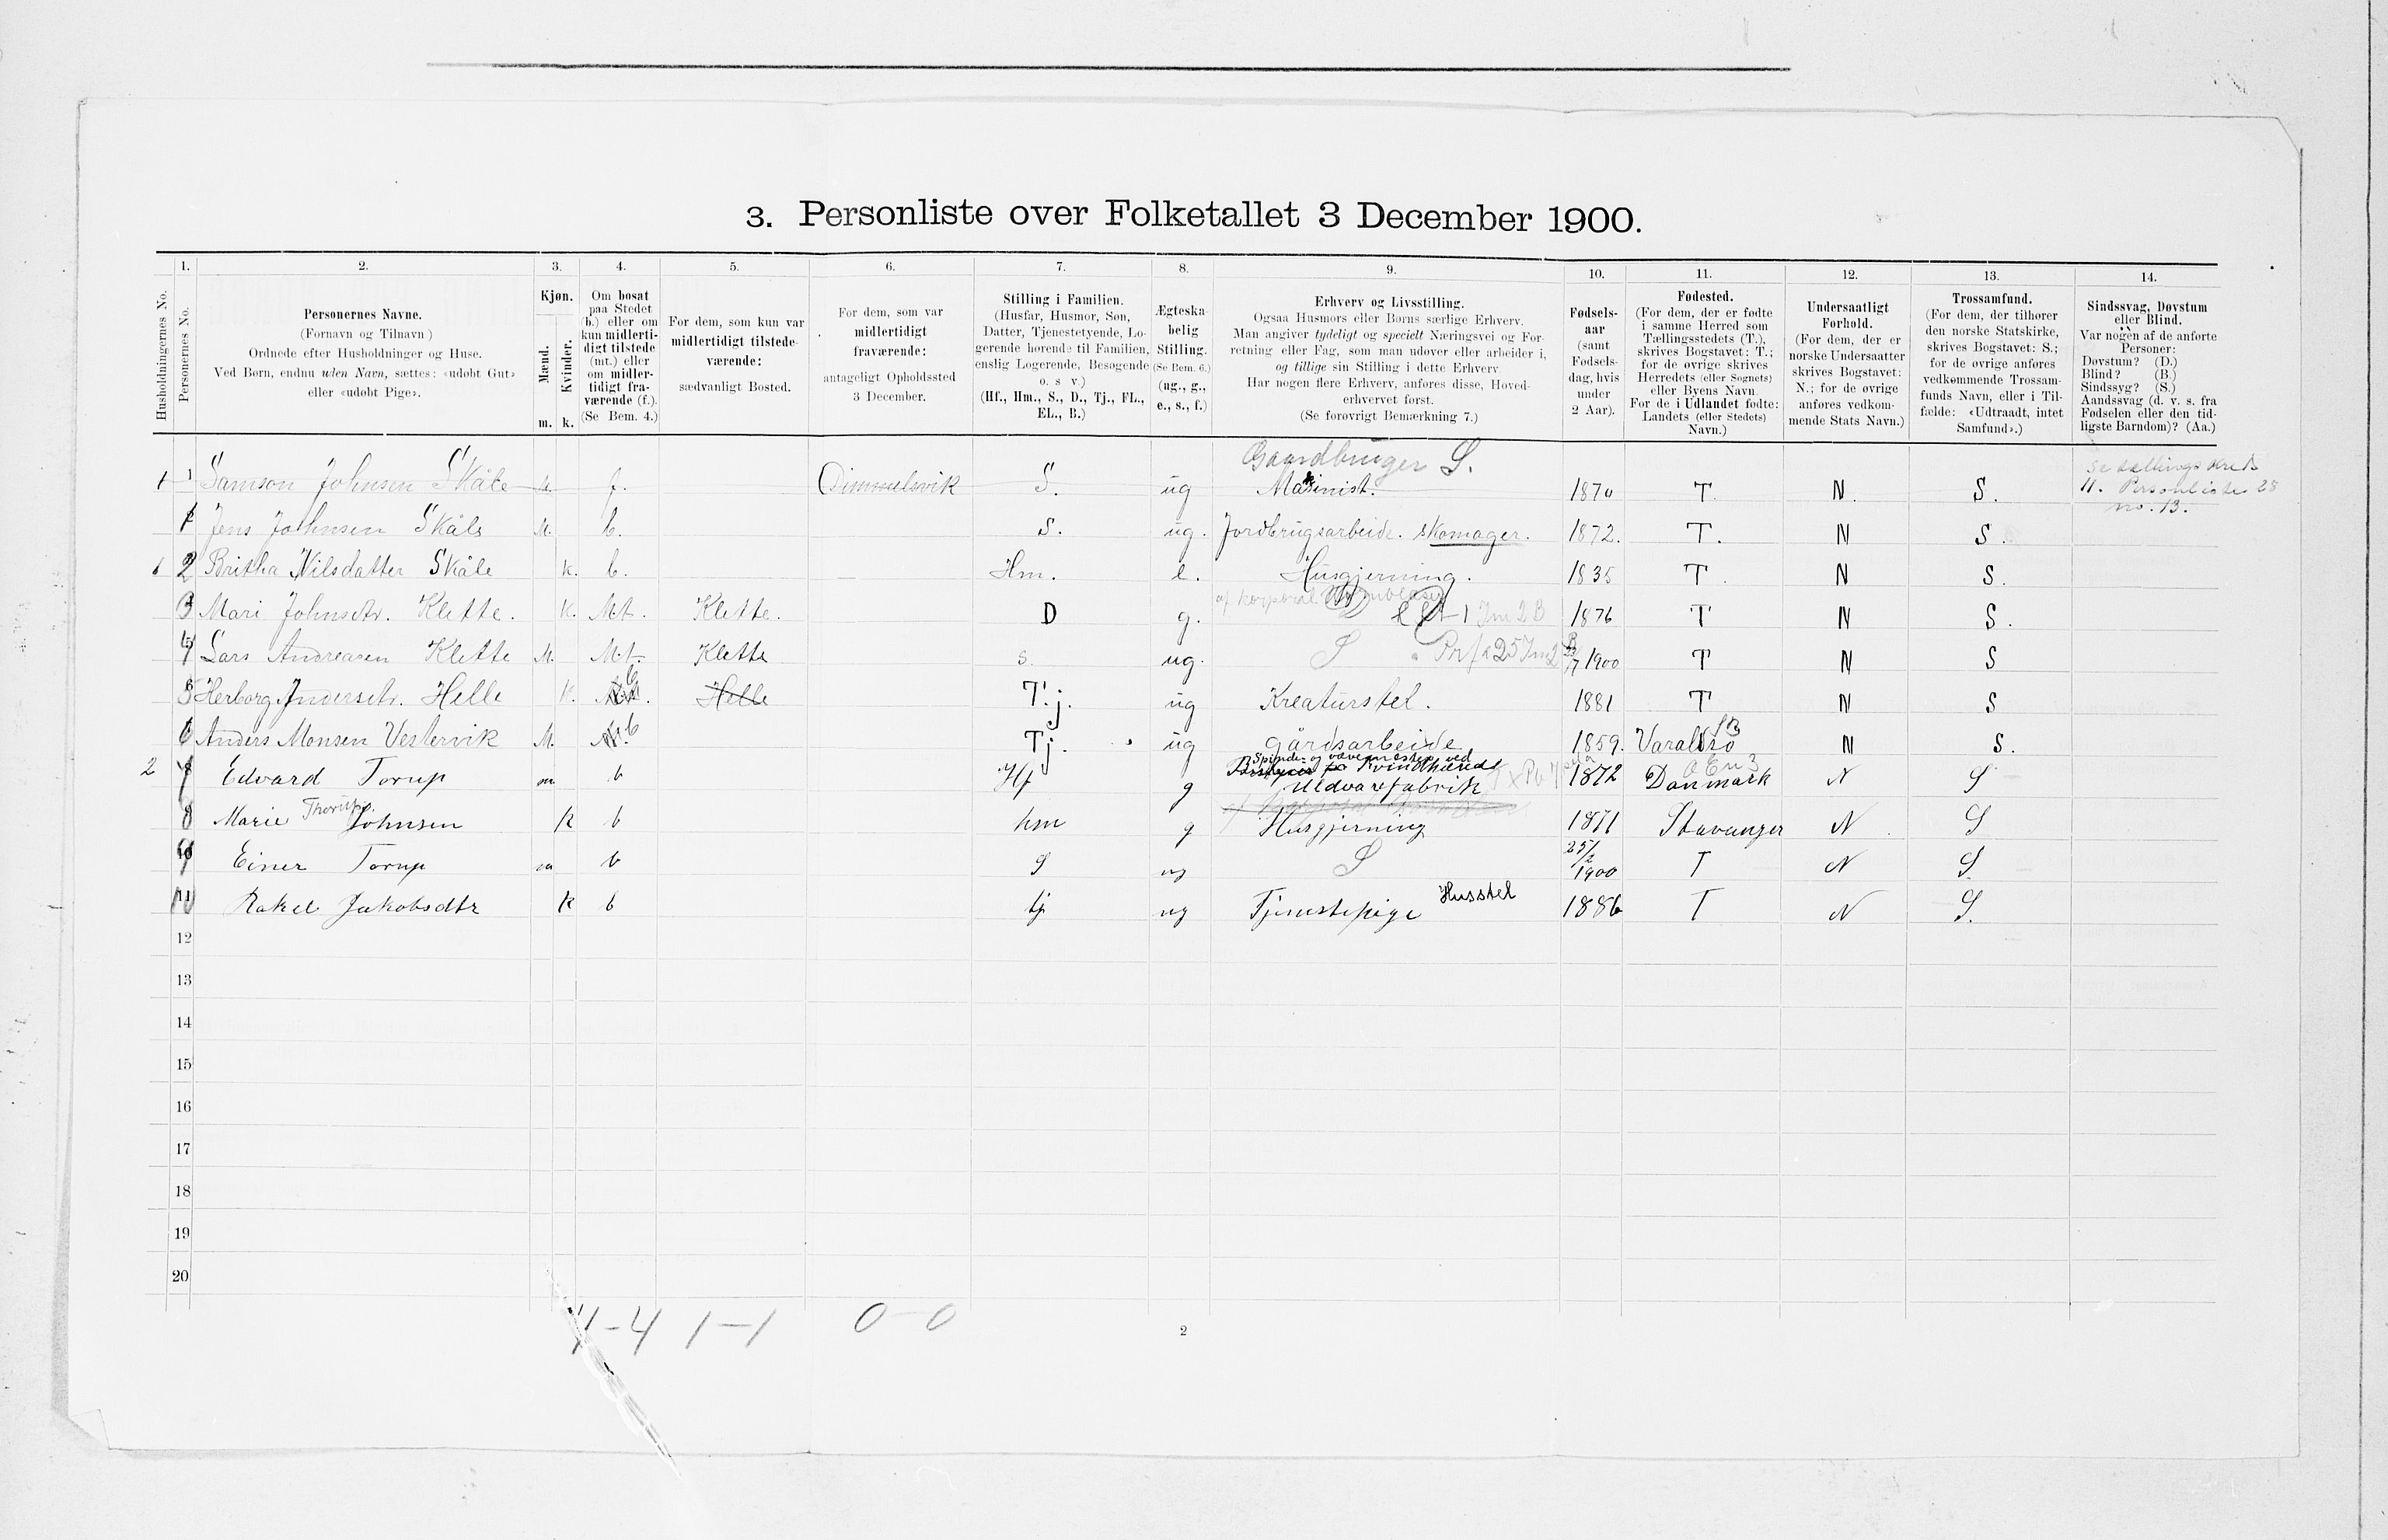 3. Personliste over Folketallet 3 December 1900.
1. 2. 3. 4. 5. 6. 7. 8. 9. 10. 11. 12. 13. 14.
Husholdningernes No.
Personernes No.
Personernes Navne.
(Fornavn og Tilnavn)
Ordnede efter Husholdninger og Huse.
Ved Børn, endnu uden Navn, sættes: «udøbt Gut»
eller «udøbt Pige».
Kjøn.
Mænd.
Kvinder.
m. k.
Om bosat
paa Stedet
(b.) eller om
kun midlerti-
digt tilstede
(mt.) eller
om midler-
tidigt fra-
værende (f.).
(Se Bem. 4.)
For dem, som kun var
midlertidigt tilstede-
værende:
sædvanligt Bosted.
For dem, som var
midlertidigt
fraværende:
antageligt Opholdssted
3 December.
Stilling i Familien.
(Husfar, Husmor, Søn,
Datter, Tjenestetyende, Lo-
gerende hørende til Familien,
enslig Logerende, Besøgende
o. s. v.)
(Hf., Hm., S., D., Tj., FL.,
EL., B.)
Ægteska-
belig
Stilling.
(Se Bem. 6.)
(ug., g.,
e., s., f.)
Erhverv og Livsstilling.
Ogsaa Husmors eller Børns særlige Erhverv.
Man angiver tydeligt og specielt Næringsvei og For-
retning eller Fag, som man udøver eller arbeider i,
og tillige sin Stilling i dette Erhverv
Har nogen flere Erhverv, anføres disse, Hoved-
erhvervet først.
(Se forøvrigt Bemærkning 7.)
Fødsels-
aar
(samt
Fødsels-
dag, hvis
under
2 Aar).
Fødested.
(For dem, der er fødte
i samme Herred som
Tællingsstedets (T.),
skrives Bogstavet: T.;
for de øvrige skrives
Herredets (eller Sognets)
eller Byens Navn.
For de i Udlandet fødte:
Landets (eller Stedets)
Navn.)
Undersaatligt
Forhold.
(For dem, der er
norske Undersaatter
skrives Bogstavet:
N.; for de øvrige
anføres vedkom-
mende Stats Navn.)
Trossamfund.
(For dem, der tilhører
den norske Statskirke,
skrives Bogstavet: S.;
for de øvrige anføres
vedkommende Trossam-
funds Navn, eller i Til-
fælde: «Udtraadt, intet
Samfund».)
Sindssvag, Døvstum
eller Blind.
Var nogen af de anførte
Personer:
Døvstum? (D.)
Blind? (B.)
Sindssyg? (S.)
Aandssvag (d. v. s. fra
Fødselen eller den tid-
ligste Barndom)? (Aa.)
Gaardbruger S.
1 Samson Johnsen Skåle M. f. Dimmelsvik S. ug Maskinist. 1870 T N. S. se tællingskreds
11. Personliste 28
no. 13.
1 Jens Johnsen Skåle M. b. S. ug. Jordbrugsarbeide. skomager. 1872. T. N S
2 Britha Nilsdatter Skåle k. b. Hm. e. Husgjerning. 1835 T. N S.
af korporal
3 Mari Johnsdtr. Klette. k. Mt. Klette. D g. 1876 T N S.
4 Lars Andreasen Klette M. M.t. Klette s. ug. S 1900 T N S
5 Herborg Andersdtr. Helle k. b Helle T.j. ug Kreaturstel. 1881 T N S
6 Anders Monsen Vestervik M. b Tj. ug gårdsarbeide 1859. Varaldsø N S.
Spinde- og vævemester ved
2 Edvard Torup m b Hf g Uldvarefabrik 1872 Danmark N S
8 Marie Thorup Johnsen k b hm g Husgjerning 1871 Stavanger N S
9 Einer Torup m b S ug S 25/2 1900 T N S.
Rakel Jakobsdtr k b tj ug Tjenestepige Husstel 1886 T N S.
12
13
14
15
16
17
18
19
20
4 1-1 0-0
2